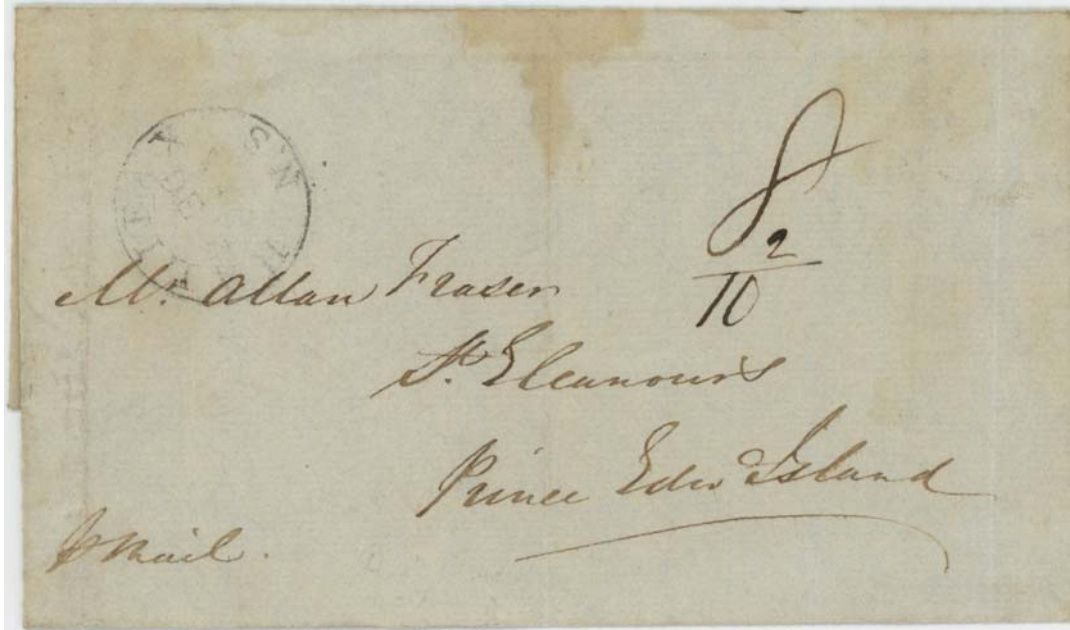 DE
8
2
10
Mr. Allan Fraser
St. Eleanour's
Prince Edw Island
p Mail.